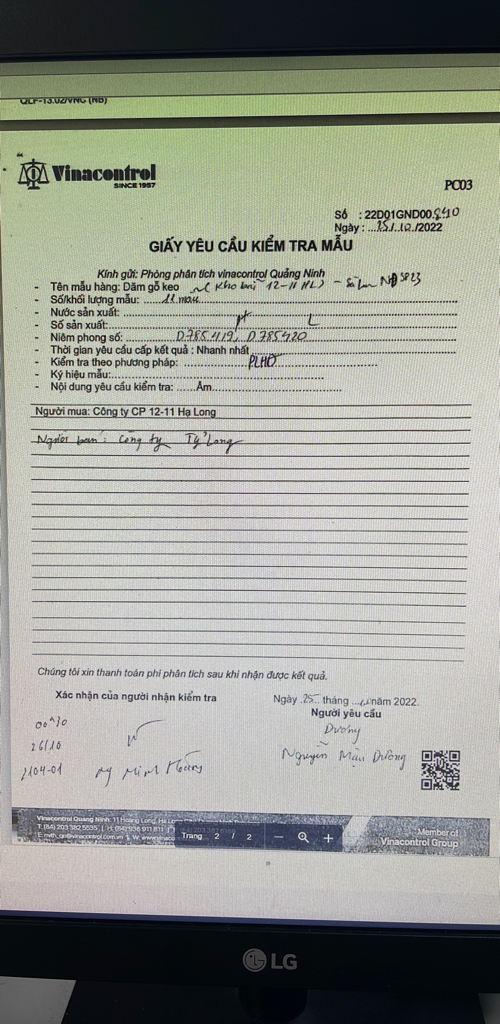 QLP-13.02/VNC (NB)
Vinacontrol
SINCE 1957
PC03
Số : 22D01GND00.840
Ngày : ...25/.10./2022
GIẤY YÊU CẦU KIỂM TRA MẪU
Kính gửi: Phòng phân tích vinacontrol Quảng Ninh
- Tên mẫu hàng: Dăm gỗ keo (Kho bãi 12-11 HL)
- Số/khối lượng mẫu: .....11 mẫu
- Nước sản xuất:
- Số sản xuất:
- Niêm phong số: D785419, D785420
- Thời gian yêu cầu cấp kết quả : Nhanh nhất
- Kiểm tra theo phương pháp: PLHĐ
- Ký hiệu mẫu:
- Nội dung yêu cầu kiểm tra: ......Ẩm
Người mua: Công ty CP 12-11 Hạ Long
Người bán: Công ty Tỷ Long
Chúng tôi xin thanh toán phí phân tích sau khi nhận được kết quả.
Xác nhận của người nhận kiểm tra
Ngày .25.. tháng ... năm 2022.
Người yêu cầu
Dương
Nguyễn Mậu Dương
00h30
26/10
2104-01
Ng Minh Hoàng
Vinacontrol Quang Ninh: 11 Hoang Long, Ha Lo
T: (84) 203 382 5635 | H: (84) 936 911 811
Trang 2 / 2
Member of
Vinacontrol Group
LG